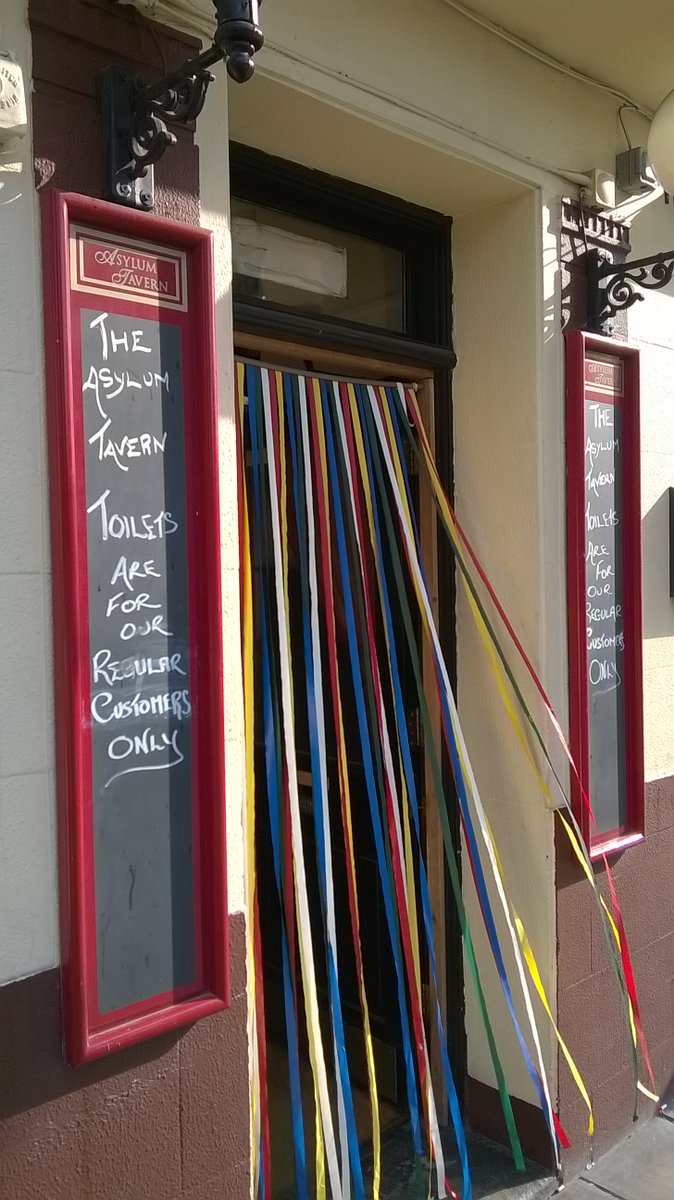 Asylum
Tavern
THE
ASYLUM
TAVERN
TOILETS
ARE
FOR
OUR
REGULAR
CUSTOMERS
ONLY
Asylum
Tavern
THE
ASYLUM
TAVERN
TOILETS
ARE
FOR
OUR
REGULAR
CUSTOMERS
ONLY